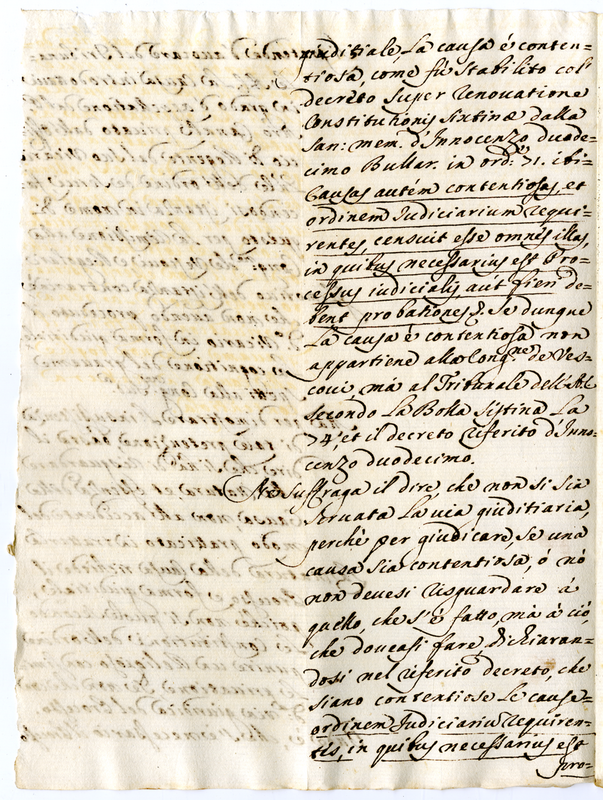 nuditiale, La causa é conten=
tiosa, come fù stabilito col
decreto super renovatione
Constitutionis sixtinæ dalla
san: mem. d'Innocenzo duode=
cimo Bullar. in ord: 71. ibi=
Causas autem contentiosas, et
ordinem Judiciarium requi=
rentes, censuit esse omnes illas,
in quibus necessarius est Pro=
cessus iudicialis, aut fieri de=
bent probationes &. Se dunque
La causa é contentiosa non
appartiene alla Cong.ne de Ves=
coui, mà al Tribunale dell'
secondo La Bolla Sistina La
74, et il decreto riferito d'Inno=
cenzo duodecimo.
Ne suffraga il dire, che non si sia
seruata La uia giuditiaria,
perchè per giudicare, se una
causa sia contentiosa, ó nò
non deuesi risguardare à
quello, che s'é fatto, mà à ciò,
che doueasi fare, dichiaran=
dosi nel riferito decreto, che
siano contentiose Le cause=
ordinem Judiciariũ requiren=
tes, in quibus necessarius est
pro=